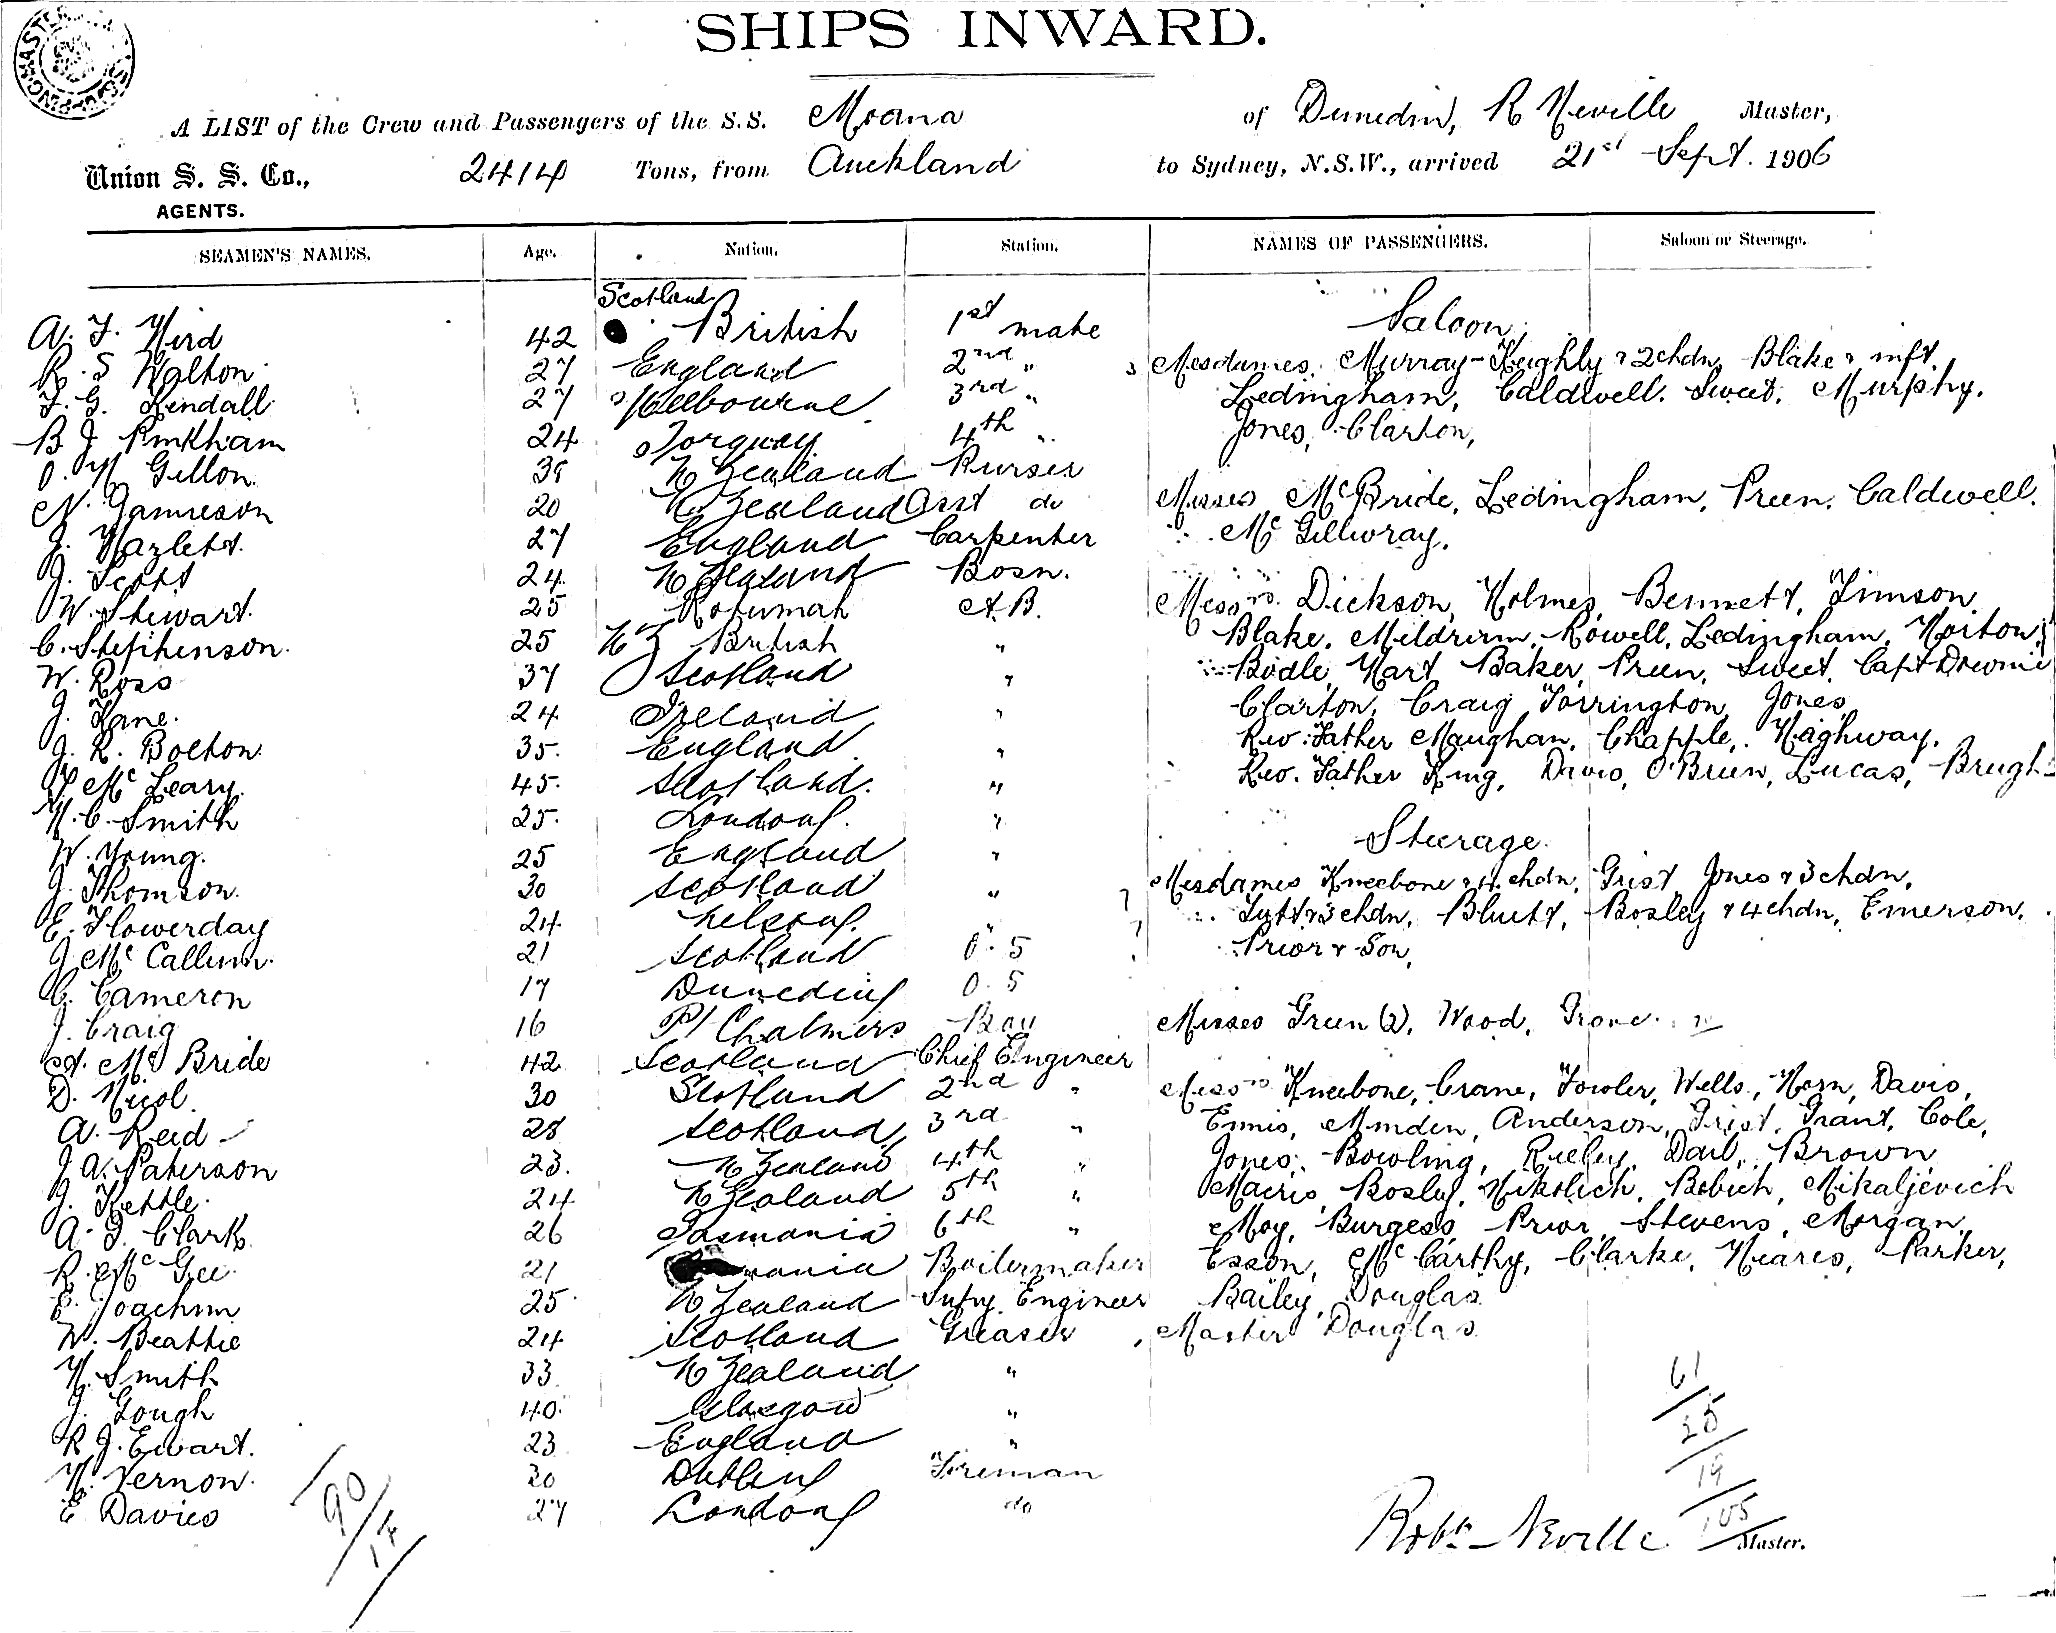 SHIPS INWARD.
A LIST of the Crew and Passengers of the S.S. Moana of Dunedin, R Neville Master,
Union S. S. Co., 2414 Tons, from Auckland to Sydney, N.S.W., arrived 21st Sept. 1906
AGENTS.
SEAMEN'S NAMES. Age. Nation. Station. NAMES OF PASSENGERS. Saloon or Steerage.
Scotland
A. F. Hird 42 British 1st mate
R. S Walton 27 England 2nd "
F. G. Kendall 27 Melbourne 3rd "
B J Pinkham 24 Torquay 4th "
O. H Gillon 38 N Zealand Purser
N. Jamieson 20 N. Zealand Asst do
J. Hazlett. 27 England Carpenter
J. Scott 24. N Zealand Bosn.
W. Stewart. 25 Rotumah A.B.
C. Stephenson. 25 NZ British "
W. Ross 37 Scotland "
J. Kane. 24 Ireland "
J. R. Bolton. 35. England "
McLeary. 45. Scotland. "
H. C. Smith 25. London. "
W. Young. 25 England "
J. Thomson. 30 Scotland "
E. Flowerday 24. Nelson. "
J McCallum. 21 Scotland O. S
C. Cameron 17 Dunedin O. S
J. Craig 16 Pt Chalmers Boy
A. McBride 42 Scotland Chief Engineer
D. Nicol. 30 Scotland 2nd "
A. Reid 28 Scotland 3rd "
J A. Paterson 23. N Zealand 4th "
J. Kettle. 24 N Zealand 5th "
A. J. Clark 26 Tasmania 6th "
R. McGee. 21 Boilermaker
E. Joachim 25 N Zealand Engineer
W. Beattie 24 Scotland Greaser
H. Smith 33 N Zealand "
J. Gough 40. Glasgow "
R J. Ewart. 23 England "
H. Vernon. 30 Dublin Fireman
E Davies 27 London do
90
14
Saloon
Mesdames. Murray-Keighly & 2chdn, Blake & inft.
Ledingham, Caldwell. Sweet. Murphy.
Jones, Clarton,
Misses McBride, Ledingham, Preen. Caldwell.
McGillivray.
Messrs. Dickson, Holmes, Bennett, Timson,
Blake. Meldrum, Rowell, Ledingham, Horton,
Bodle, Hart Baker, Preen, Sweet. Capt Downie
Clarton, Craig Torrington, Jones,
Rev: Father Maughan, Chapple, Haghway.
Rev. Father King, Davis, O'Brien, Lucas, Brugh
Steerage.
Mesdames Kneebone & 4 chdn, Grist Jones & 3 chdn.
3 chdn, Bluett, Bosley & 4chdn, Emerson.
Prior & Son,
Misses Green (2), Wood, Grove.
Messrs Kneebone, Crane, Fowler, Wells, Horn, Davis,
Ennis, Minden, Anderson, Grist, Grant, Cole,
Jones, Bowling, Rieley, Brown
Macris, Bosley, Nikolich, Bobich, Mikaljevich
Moy, Burgess Prior Stevens, Morgan,
Esson, McCarthy, Clarke, Heares, Parker,
Bailey, Douglas
Master Douglas
61
25
19
105
Robt Neville Master.